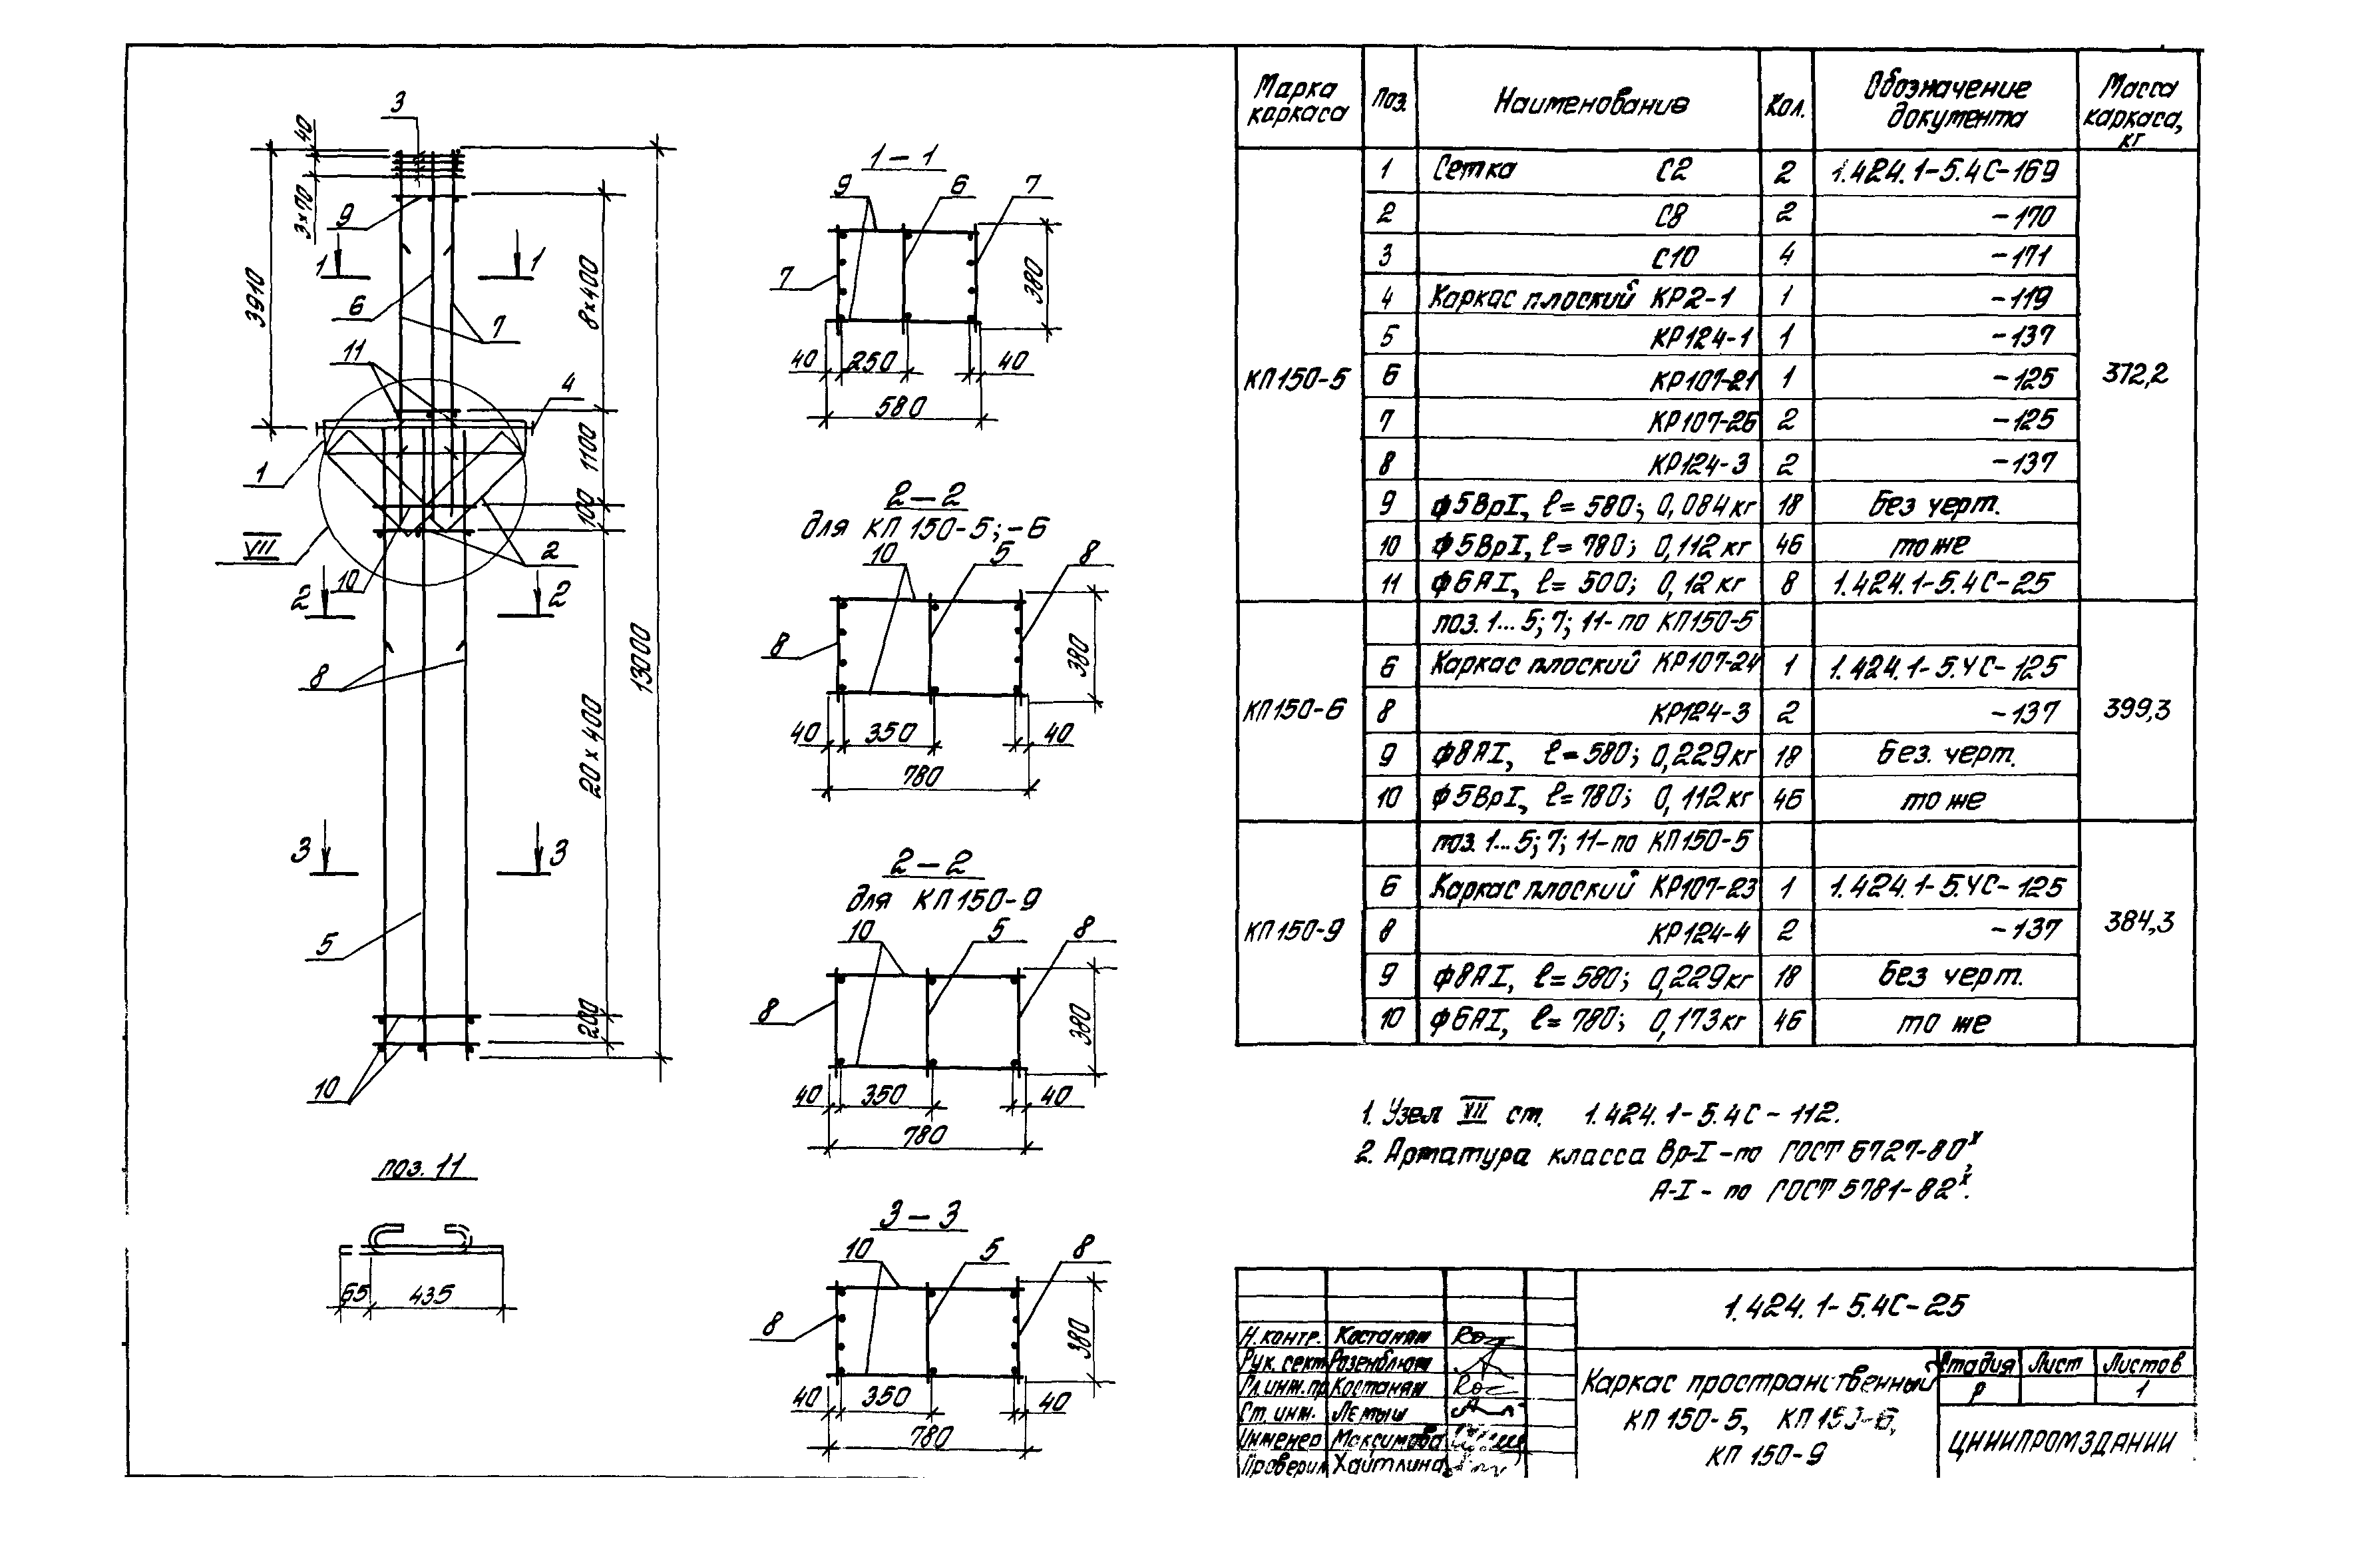 3
40
3×70
3910
9
1 1
6
7
11
4
1
VII
10
2
2 2
8
3 3
5
10
8×400
1100
100
20×400
200
13000
поз. 11
65 435
1–1
9 6 7
7
380
40 250 40
580
2–2
для КП 150-5; -6
10 5 8
8
380
40 350 40
780
2–2
для КП 150-9
10 5 8
8
380
40 350 40
780
3–3
10 5 8
8
380
40 350 40
780
Марка каркаса Поз. Наименование Кол. Обозначение документа Масса каркаса, кг
КП150-5 372,2
1 Сетка С2 2 1.424.1-5.4С-169
2 С8 2 -170
3 С10 4 -171
4 Каркас плоский КР2-1 1 -119
5 КР124-1 1 -137
6 КР107-21 1 -125
7 КР107-26 2 -125
8 КР124-3 2 -137
9 ф5ВрI, ℓ=580; 0,084кг 18 Без черт.
10 ф5ВрI, ℓ=780; 0,112кг 46 то же
11 ф6АI, ℓ=500; 0,12кг 8 1.424.1-5.4С-25
КП150-6 399,3
поз. 1...5; 7; 11-по КП150-5
6 Каркас плоский КР107-24 1 1.424.1-5.4С-125
8 КР124-3 2 -137
9 ф8АI, ℓ=580; 0,229кг 18 Без. черт.
10 ф5ВрI, ℓ=780; 0,112кг 46 то же
КП150-9 384,3
поз. 1...5; 7; 11-по КП150-5
6 Каркас плоский КР107-23 1 1.424.1-5.4С-125
8 КР124-4 2 -137
9 ф8АI, ℓ=580; 0,229кг 18 Без черт.
10 ф6АI, ℓ=780; 0,173кг 46 то же
1. Узел VII см. 1.424.1-5.4С-112.
2. Арматура класса Вр-I-по ГОСТ 6727-80х,
А-I- по ГОСТ 5781-82х.
1.424.1-5.4С-25
Н.контр. Костанян
Рук. сект. Розенблюм
Гл.инж.пр. Костанян
Ст. инж. Летыш
Инженер Максимова
Проверил Хайтлина
Каркас пространственный
КП 150-5, КП 150-6,
КП 150-9
Стадия Лист Листов
Р 1
ЦНИИПРОМЗДАНИЙ